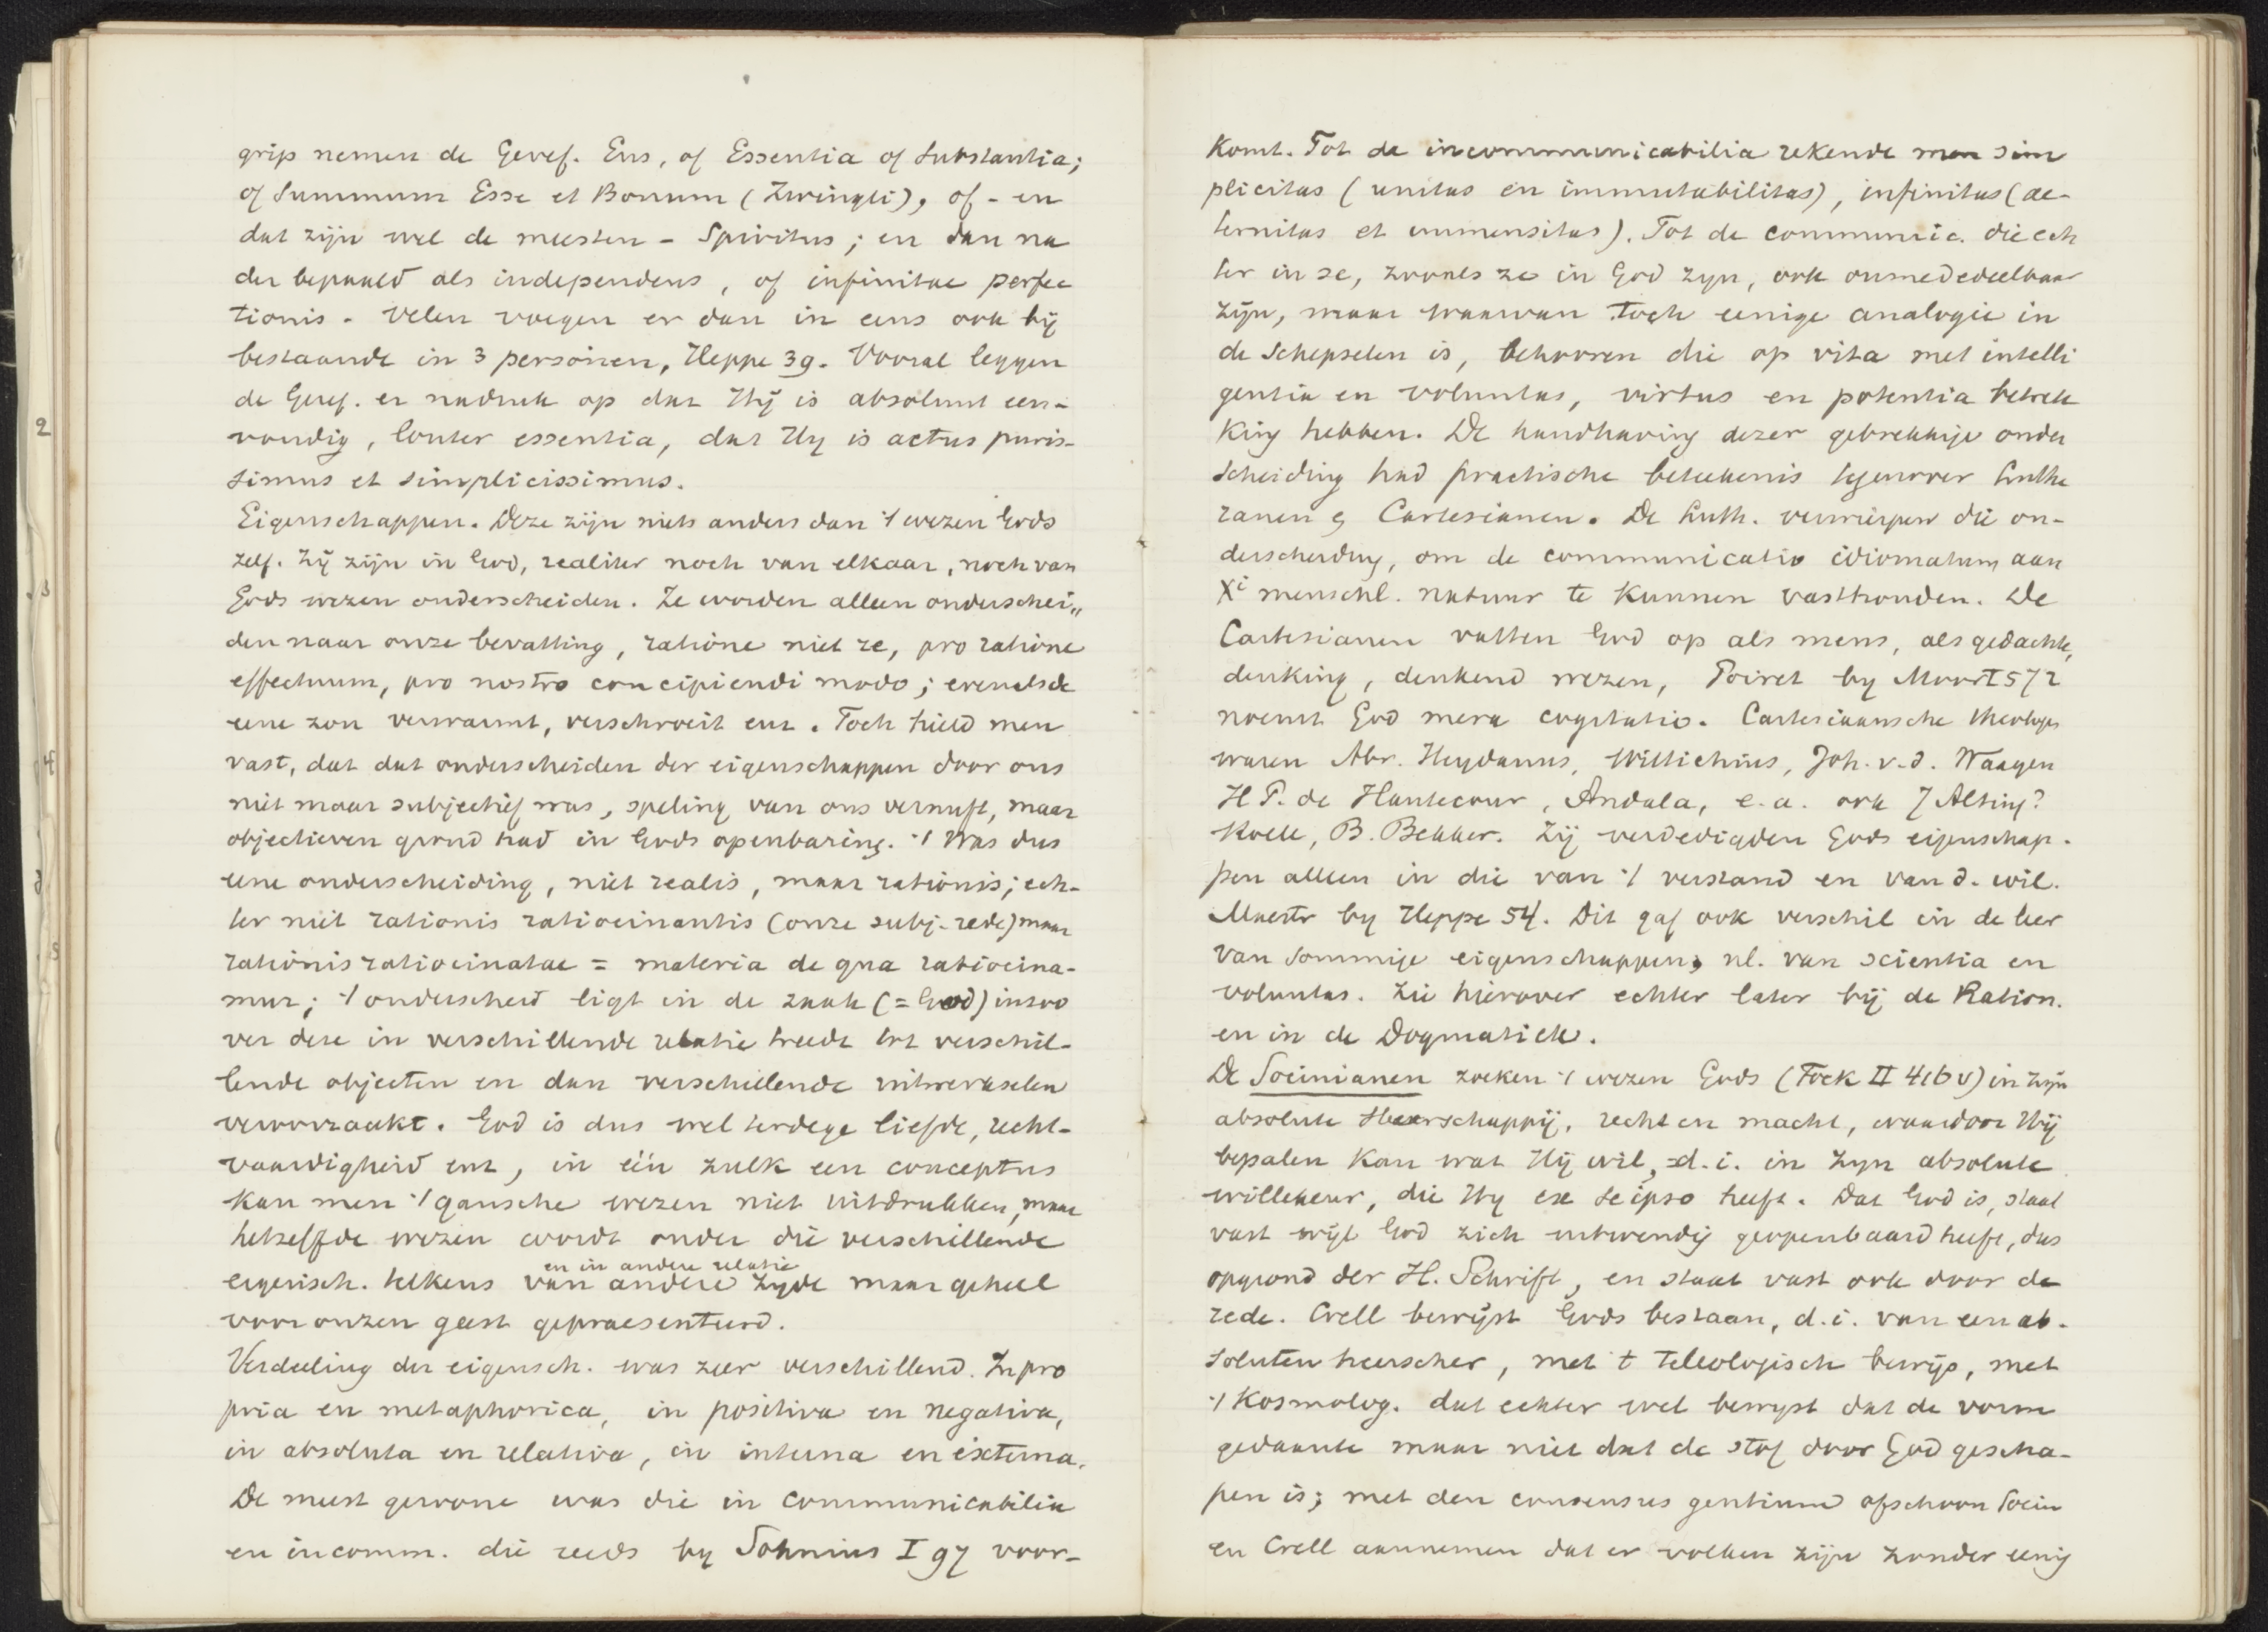 grip nemen de Geref. Ens, of Essentia of Substantia;
of Summum Esse et Bonum (Zwingli), of - en
dat zijn wel de meesten - Spiritus; en dan na
der bepaald als independens, of infinitae perfec
tionis. Velen voegen er dan in eens ook bij
bestaande in 3 personen, Heppe 39. Vooral leggen
de Geref. er nadruk op dat Hij is absoluut een-
voudig, louter essentia, dat Hy is actus puris-
simus et simplicissimus.
Eigenschappen. Deze zijn niets anders dan 't wezen Gods
zelf. Zij zijn in God, realiter noch van elkaar, noch van
Gods wezen onderscheiden. Ze worden alleen onderschei„
den naar onze bevatting, ratione niet re, pro ratione
effectuum, pro nostro concipiendi modo; evenals de
eene zon verwarmt, verschroeit enz. Toch hield men
vast, dat dat onderscheiden der eigenschappen door ons
niet maar subjectief was, speling van ons vernuft, maar
objectieven grond had in Gods openbaring. 't Was dus
eene onderscheiding, niet realis, maar rationis; ech-
ter niet rationis ratiocinantis (onze subj. rede) maar
rationis ratiocinatae = materia de qua ratiocina-
mur; 't onderscheid ligt in de zaak (= God) inzoo
ver deze in verschillende relatie treedt tot verschil-
lende objecten en dan verschillende uitwerkselen
veroorzaakt. God is dus wel terdege liefde, recht-
vaardigheid enz, in één zulk een conceptus
kan men 't gansche wezen niet uitdrukken, maar
hetzelfde wezen wordt onder die verschillende
en in andere relatie
eigensch. telkens van andere zyde maar geheel
voor onzen geest gepraesenteerd.
Verdeeling der eigensch. was zeer verschillend. In pro
pria en metaphorica, in positiva en negativa,
in absoluta en relativa, in interna en externa.
De meest gewone was die in communicabilia
en incomm. die reeds by Sohnius I 97 voor-
2
3
4
5
komt. Tot de incommunicabilia rekende men sim
plicitas (unitas en immutabilitas), infinitas (ae-
ternitas et immensitas). Tot de communic. die ech
ter in se, zooals ze in God zyn, ook onmededeelbaar
zijn, maar waarvan toch eenige analogie in
de schepselen is, behooren die op vita met intelli
gentia en voluntas, virtus en potentia betrek
king hebben. De handhaving dezer gebrekkige onder
scheiding had practische beteekenis tegenover Luthe
ranen en Cartesianen. De Luth. verwierpen die on-
derscheiding, om de communicatio idiomatum aan
Xi menschl. natuur te kunnen vasthouden. De
Cartesianen vatten God op als mens, als gedachte,
denking, denkend wezen, Poiret by Moor I 572
noemt God mera cogitatio. Cartesiaansche theologen
waren Abr. Heydanus, Wittichius, Joh. v.d. Waayen
H P. de Hautecour, Andala, e.a. ook J Alting?
Roëll, B. Bekker. Zij verdedigden Gods eigenschap-
pen alleen in die van 't verstand en van d. wil.
Maestr by Heppe 54. Dit gaf ook verschil in de leer
van sommige eigenschappen, nl. van scientia en
voluntas. Zie hierover echter later bij de Ration.
en in de Dogmatiek.
De Socinianen zoeken 't wezen Gods (Fock II 416 v) in Zijn
absolute Heerschappij, recht en macht, waardoor Hij
bepalen kan wat Hij wil, d.i. in Zyn absolute
willekeur, die Hy ex se ipso heeft. Dat God is, staat
vast wijl God zich uitwendig geopenbaard heeft, dus
op grond der H. Schrift, en staat vast ook door de
rede. Crell bewijst Gods bestaan, d.i. van een ab-
soluten heerscher, met t teleologisch bewijs, met
't kosmolog. dat echter wel bewyst dat de vorm
gedaante maar niet dat de stof door God gescha-
pen is; met den consensus gentium ofschoon Socin
en Crell aannemen dat er volken zijn zonder eenig